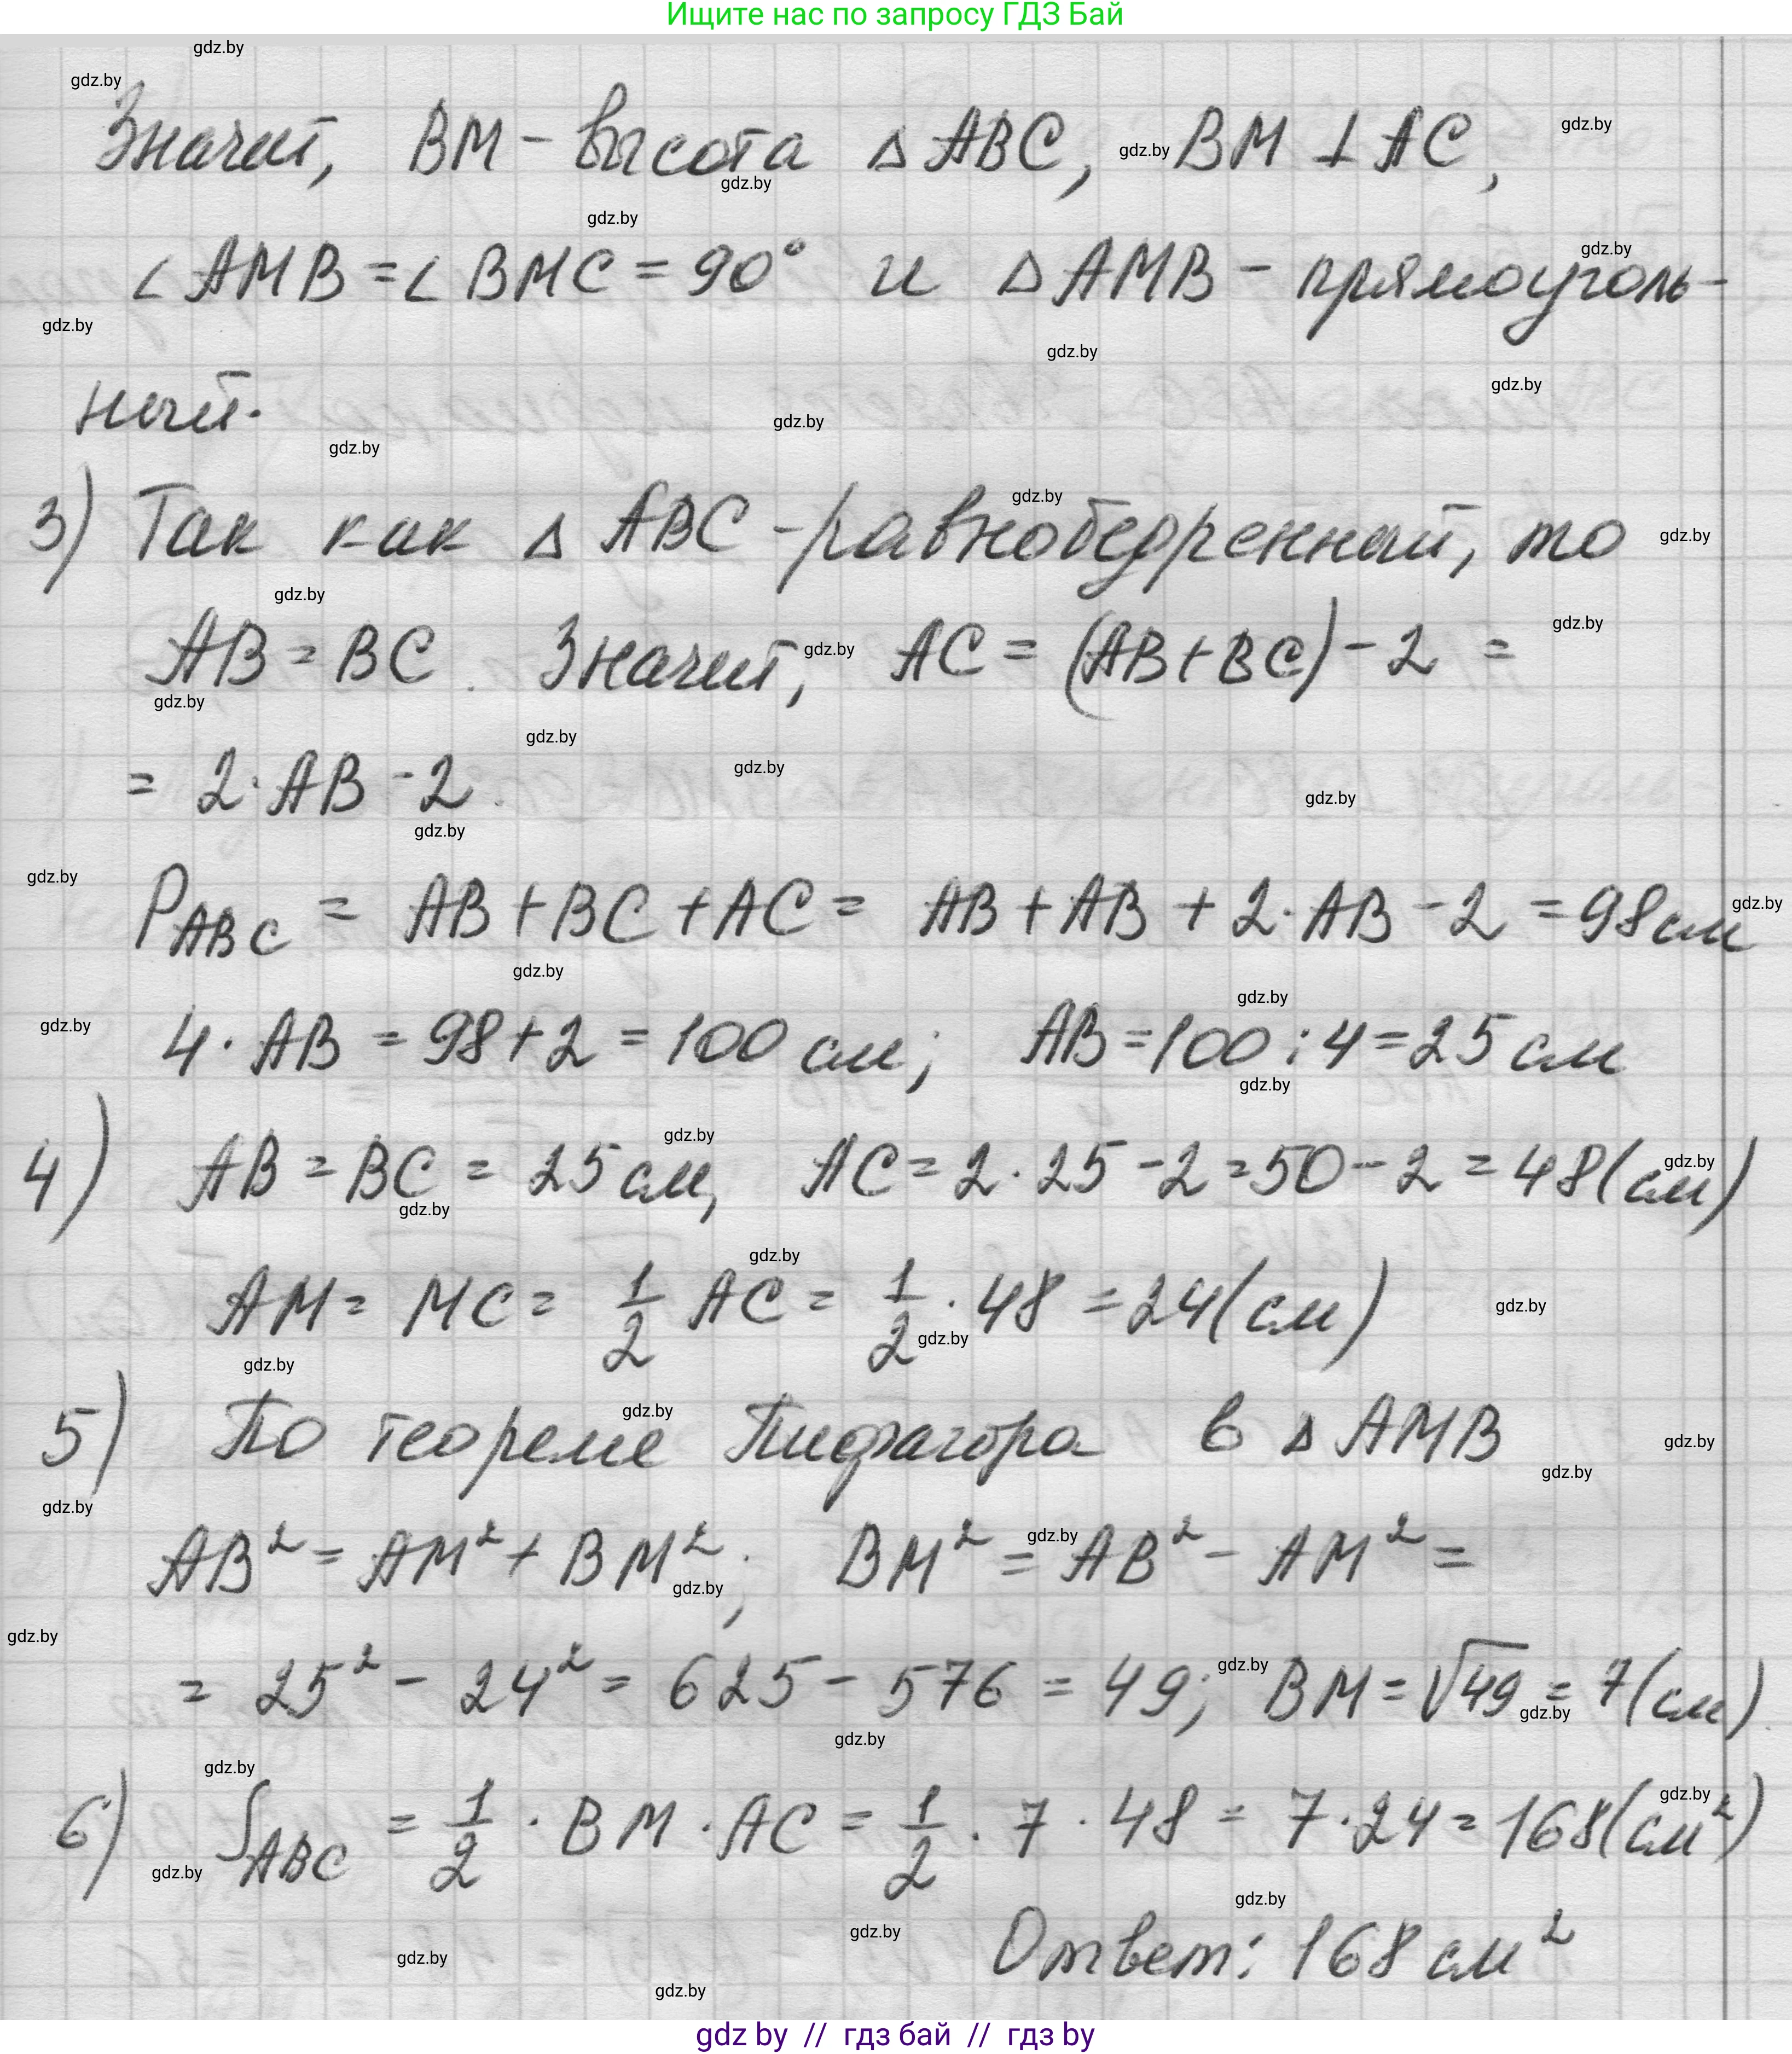 Ищите нас по запросу ГДЗ Бай
gdz.by
gdz.by
Значит, BM - высота △ ABC, BM ⊥ AC,
∠ AMB = ∠ BMC = 90° и △ AMB - прямоуголь-
ный.
3) Так как △ ABC - равнобедренный, то
AB = BC. Значит, AC = (AB + BC) - 2 =
= 2 · AB - 2.
P_ABC = AB + BC + AC = AB + AB + 2 · AB - 2 = 98 см
4 · AB = 98 + 2 = 100 см; AB = 100 : 4 = 25 см
4) AB = BC = 25 см, AC = 2 · 25 - 2 = 50 - 2 = 48 (см)
AM = MC = 1/2 AC = 1/2 · 48 = 24 (см)
5) По теореме Пифагора в △ AMB
AB² = AM² + BM²; BM² = AB² - AM² =
= 25² - 24² = 625 - 576 = 49; BM = √49 = 7 (см).
6) S_ABC = 1/2 · BM · AC = 1/2 · 7 · 48 = 7 · 24 = 168 (см²)
Ответ: 168 см²
gdz by // гдз бай // гдз by